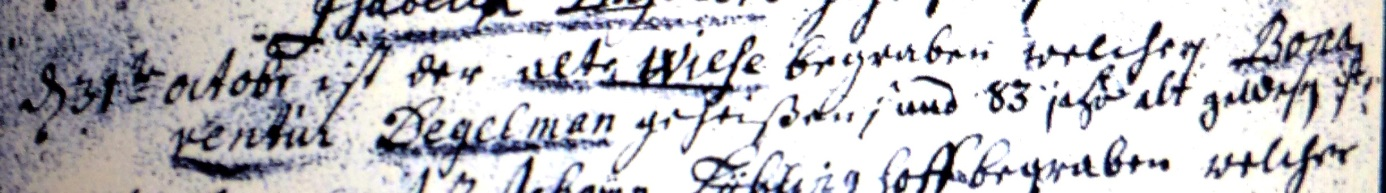 Isabella
d 31te octobr ist der alte Wilhe begraben welcher Bona
ventur Degelman geheißen, und 83 jahr alt gewesen ist.
Johann hoff begraben welcher